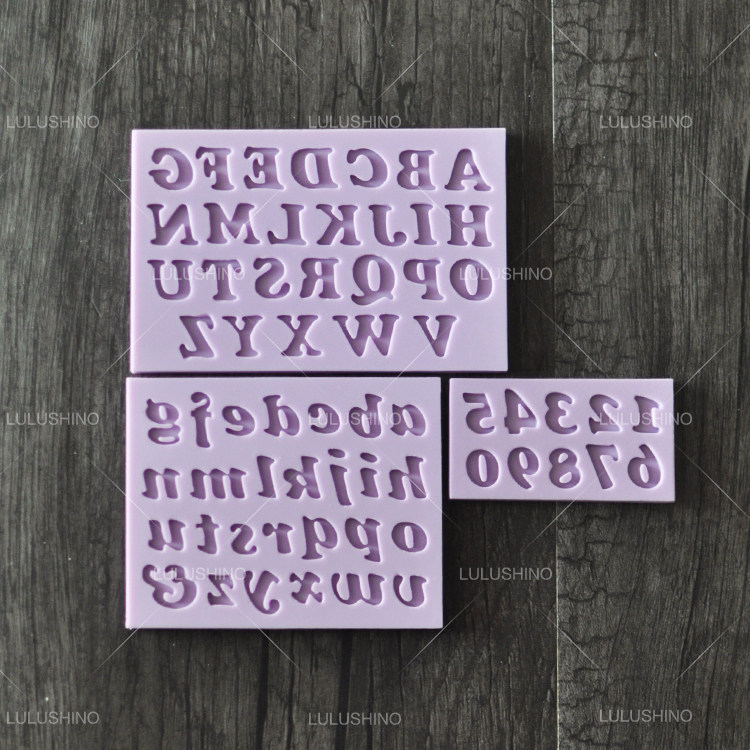 LULUSHINO LULUSHINO LULUSHINO
ABCDEFG
HIJKLMN
OPQRSTU
VWXYZ
LULUSHINO LULUSHINO
abcdefg
hijklmn
opqrstu
vwxyz&
12345
67890
LULUSHINO LULUSHINO LULUSHINO
LULUSHINO LULUSHINO
LULUSHINO LULUSHINO LULUSHINO